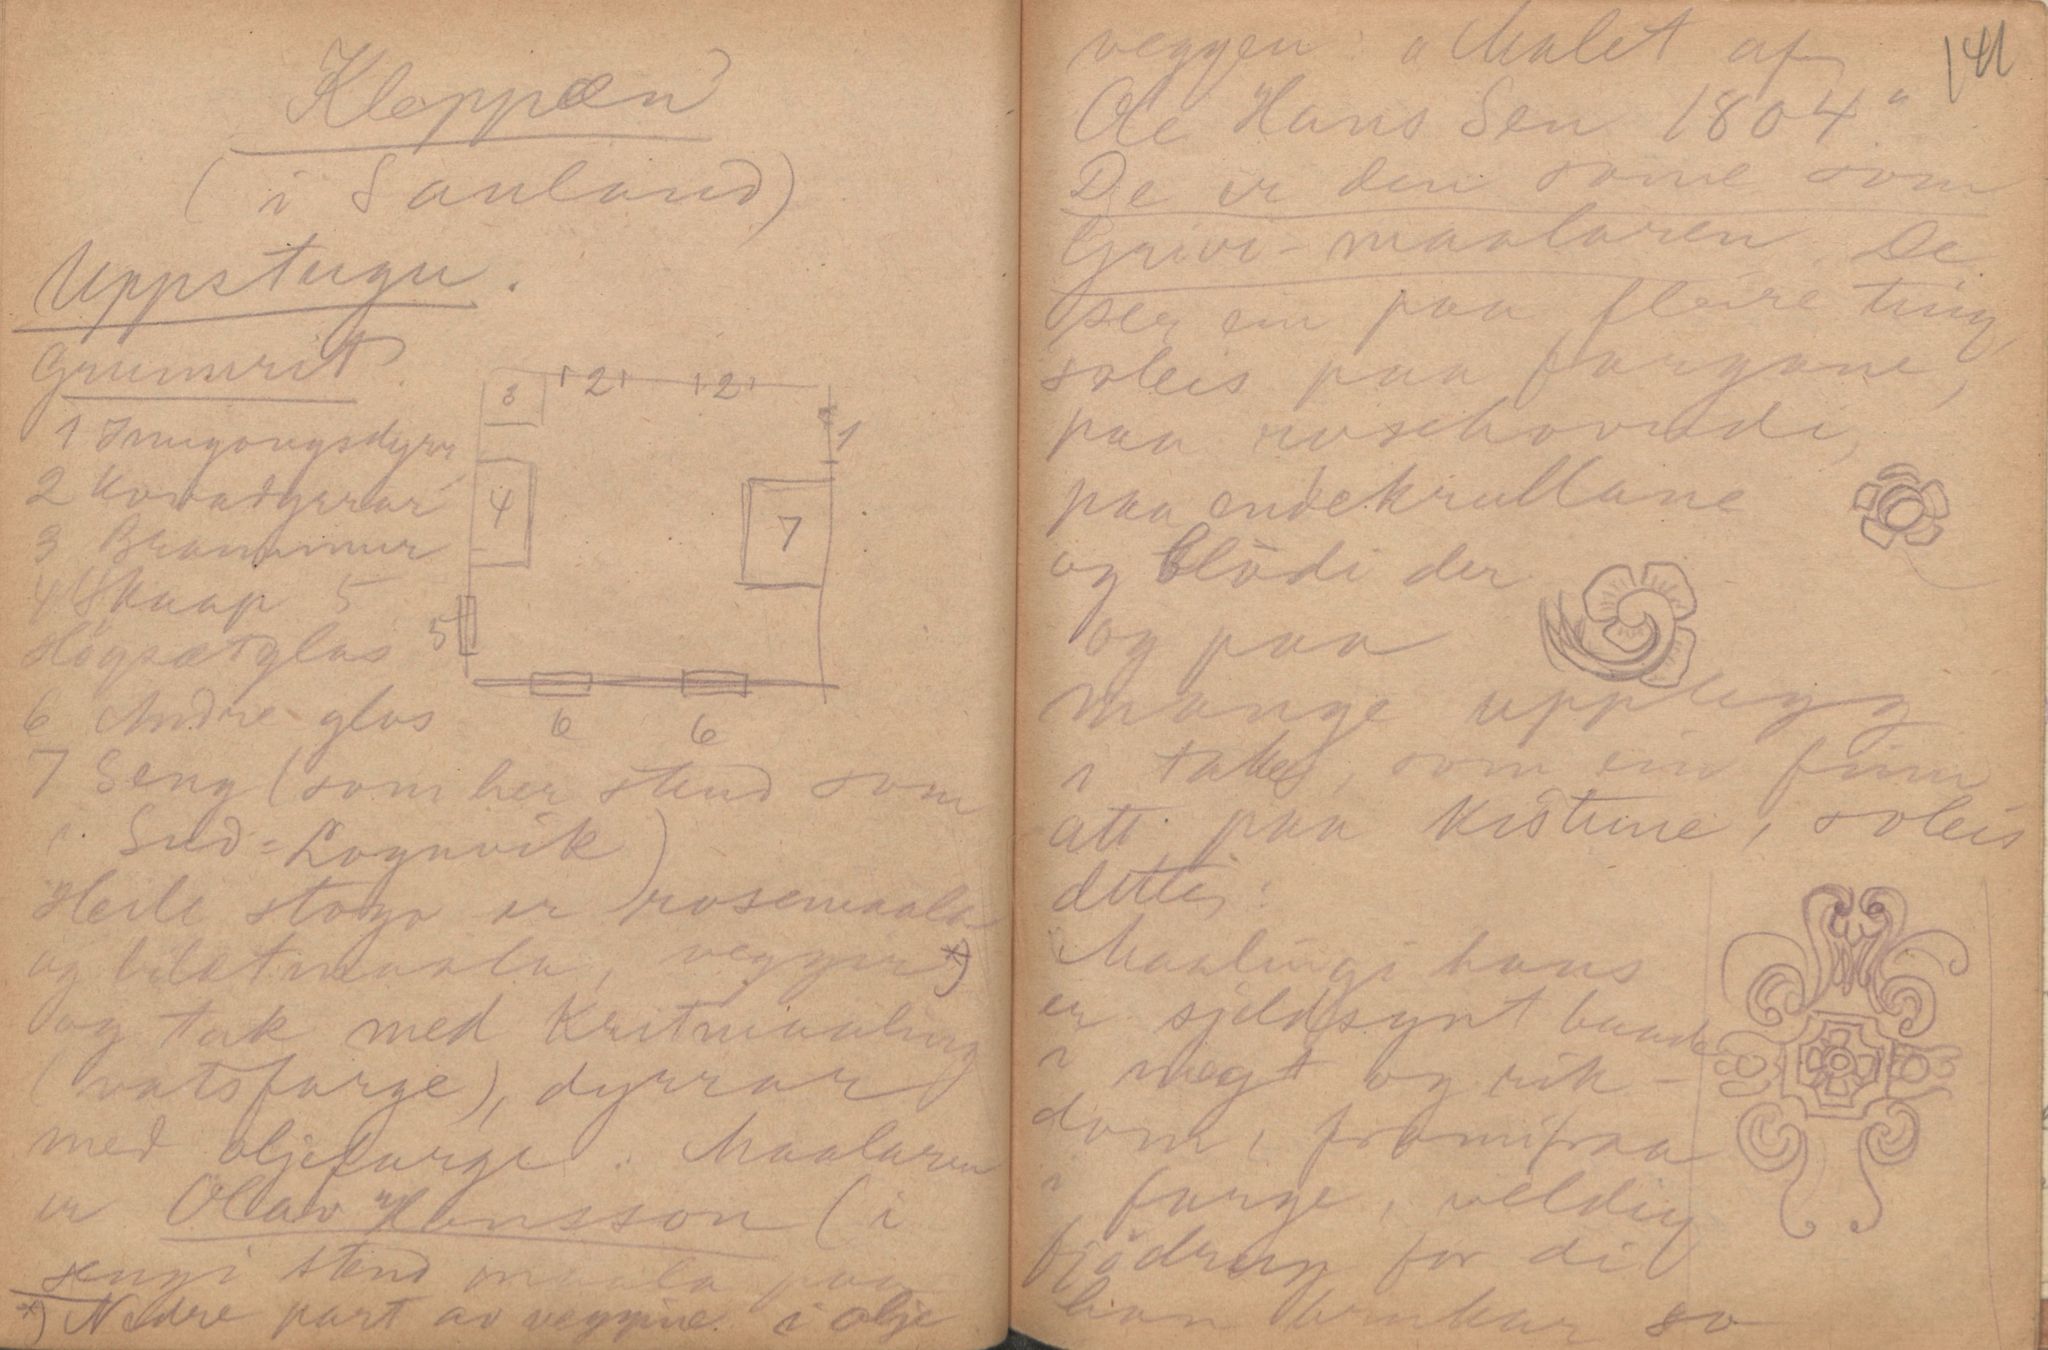 Kleppen
(i Sauland)
Uppstugu.
Grunnrit.
1 Inngongsdyrr
2 Kovadyrrar
3 Brannmur
4 Skaap 5
Högsætglas
6 Andre glas
7 Seng (som her stend som
i Sud-Lognvik)
Heile stogo er rosemaala
og biletmaala, veggir *)
og tak med Kritmaaling
(vatsfarge), dyrrar
med oljefarge. Maalaren
er Olav Hansson (i
sengi stend maala paa
*) Nedre part av veggine i olje
3 2 2
1
4
7
5
6 6
141
veggen: "Malet af
Ole Hans Sen 1804"
De er den same som
Grivi-maalaren. De
ser ein paa fleire ting,
soleis paa fargane,
paa rosehovudi,
paa endekrullane
og blödi der
og paa
mange upplegg
i taket, som ein finn
att paa kistune, soleis
dette:
Maalingi hans
er sjeldsynt baade
i magt og rik-
dom, framifraa
i farge, veldig
fjödrung for di
han brukar so